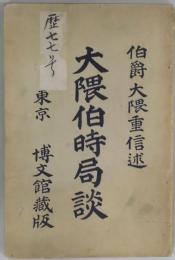 伯爵大隈重信述
大隈伯時局談
歴七七号
東京
博文館蔵版